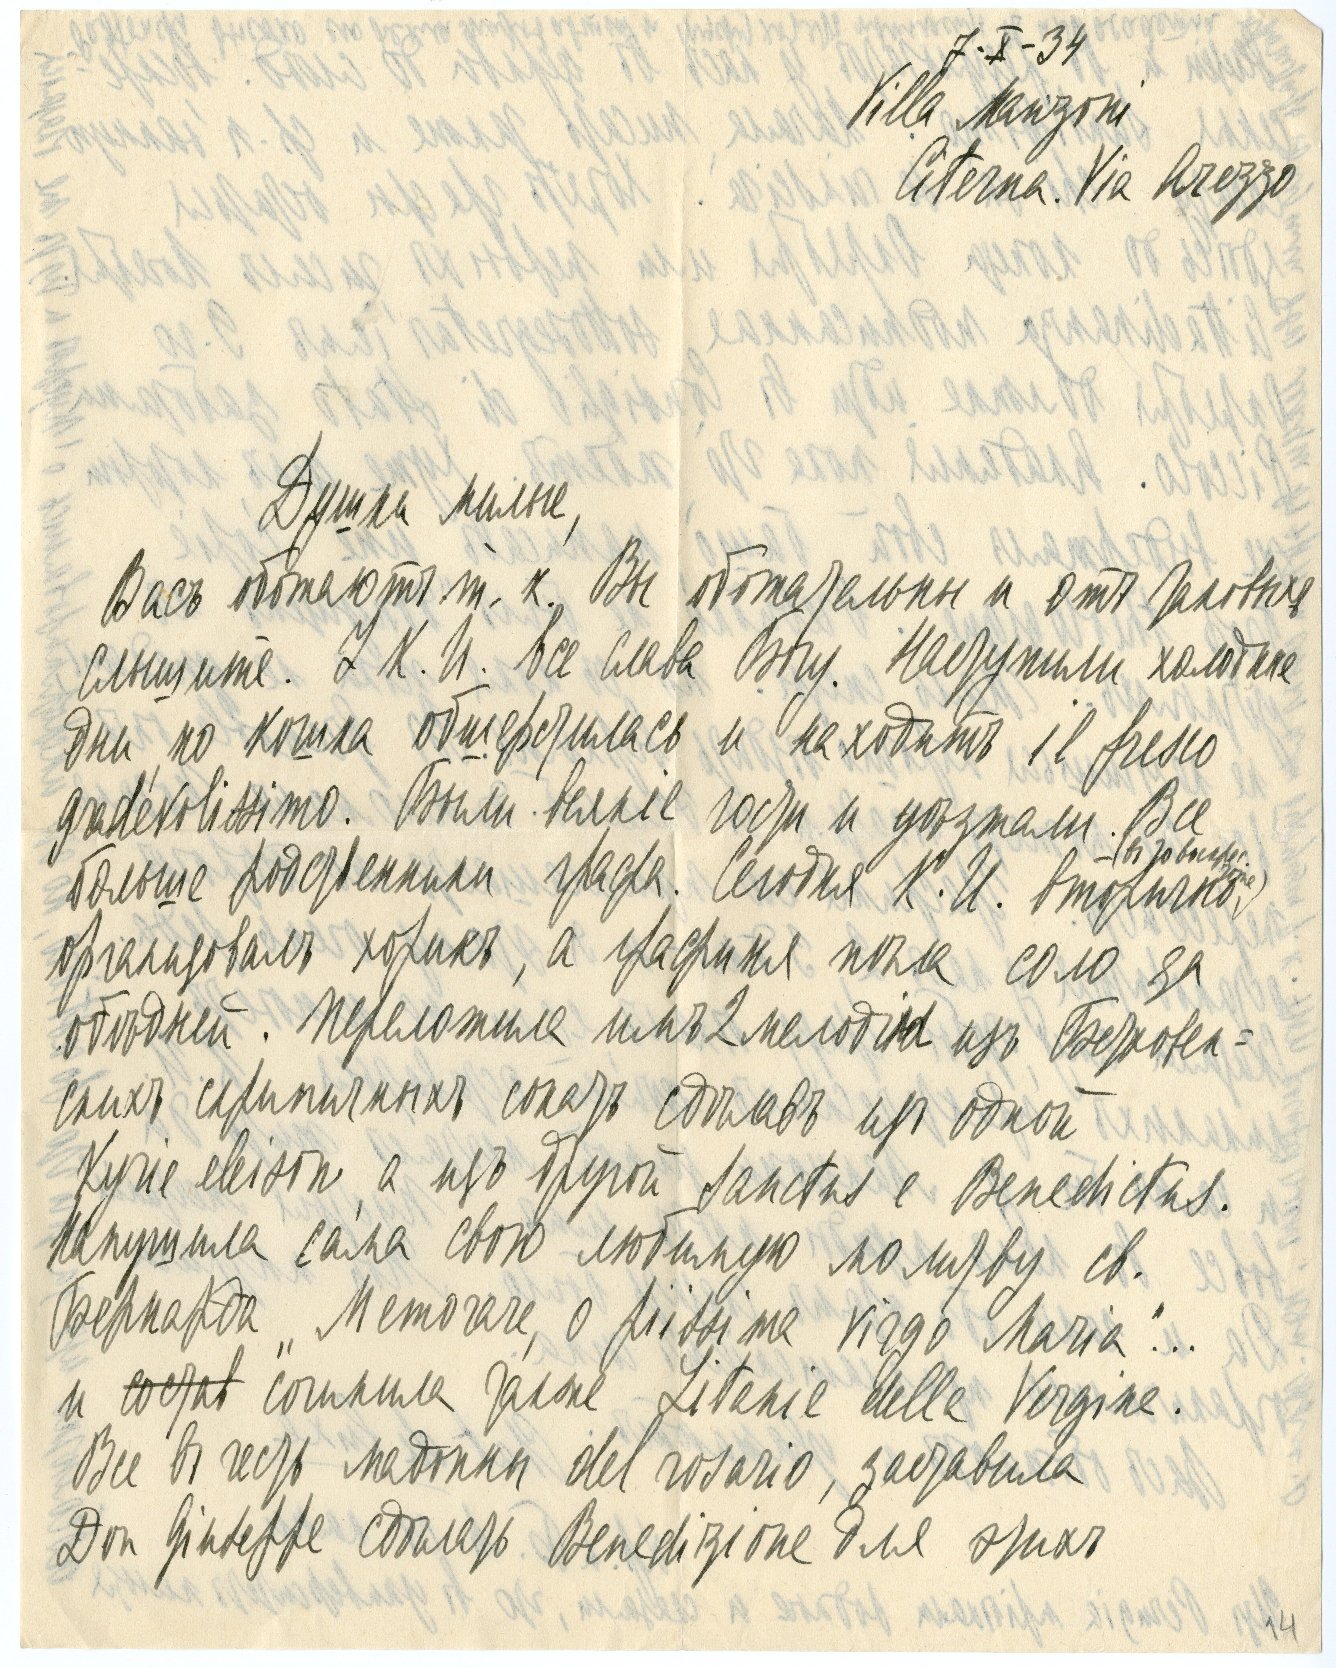 7-X-34
Villa Manzoni
Citerna. Via Arezzo
Душки милые,
Васъ обожаютъ т. к. Вы обожательны и отъ таковыхъ
слышите. У К. И. все слава Богу. Наступили холодные
дни, но кошка обшерстилась и находитъ il fresco
gradévolissimo. Были всякіе гости и уѣзжали. Все
больше родственники графа. Сегодня К. И. вторично
организовалъ хорикъ, а графиня пѣла соло за
обѣдней. Переложила имъ 2 мелодіи изъ Бетховен=
скихъ скрипичныхъ сонатъ сдѣлавъ изъ одной
Kyrie eleison, а изъ другой Sanctus e Benedictus.
Накупшила сама свою любимую молитву св.
Бернарда „Memorare, o piissima Virgo Maria"...
и состав сочинила также Litanie della Vergine.
Все въ честь Мадонны del rosario, заставила
Don Giuseppe сдѣлать Benedizione для этихъ
14